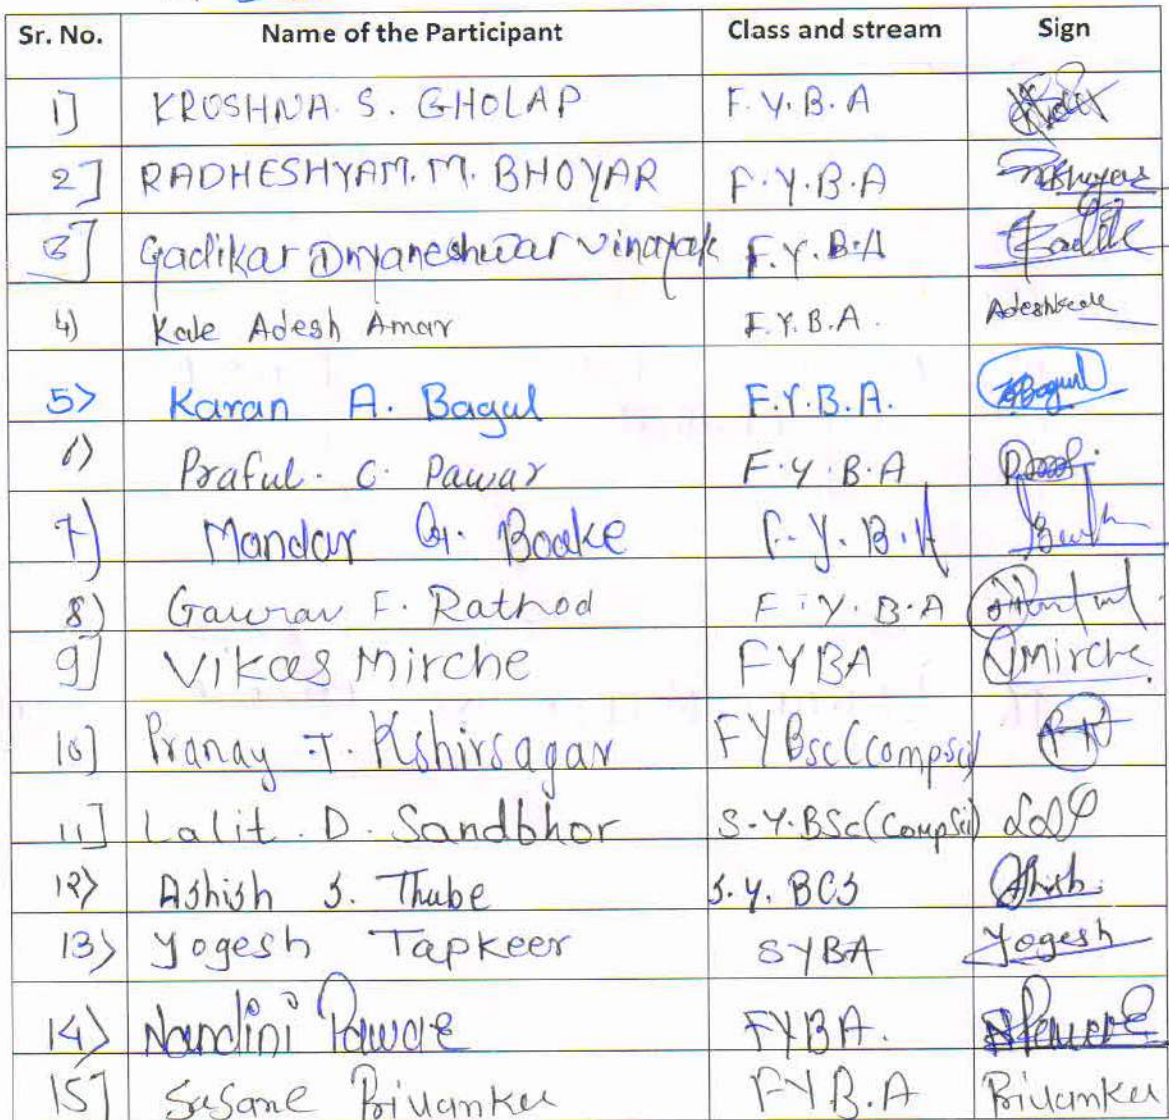 Sr. No. Name of the Participant Class and stream Sign
1] KRUSHNA. S. GHOLAP F.Y.B.A
2] RADHESHYAM. M. BHOYAR F.Y.B.A Bhoyar
3] Gadikar Dnyaneshwar Vinayak F.Y.B.A
4) Kale Adesh Amar F.Y.B.A. Adeshkale
5> Karan A. Bagul F.Y.B.A. Bagul
6) Praful. C. Pawar F.Y.B.A
7) Mandar G. Boake F.Y.B.A
8) Gaurav F. Rathod F.Y.B.A
9] Vikas Mirche FYBA VMirche
10] Pranay T. Kshirsagar FYBsc(Compsci)
11] Lalit. D. Sandbhor S.Y.BSc(CompSci)
12> Ashish S. Thube S.Y. BCS Ashish
13> Yogesh Tapkeer SYBA Yogesh
14> Nandini Pawar FYBA. NPawar
15] Sasane Priyanka FYB.A Priyanka